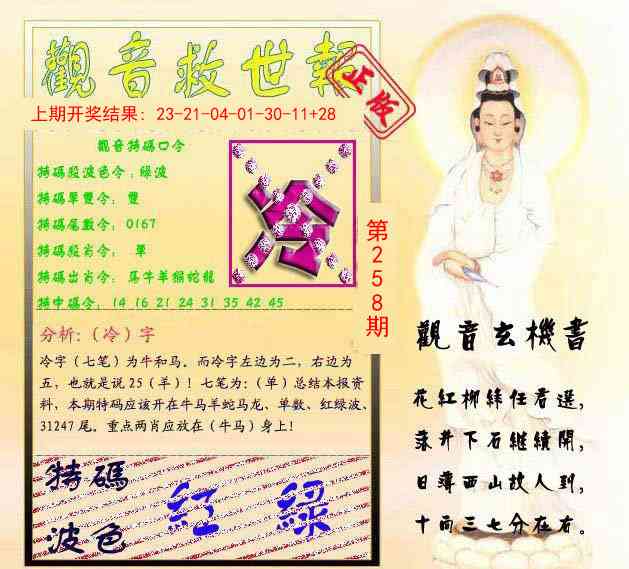 觀音救世報
正版
上期开奖结果：23-21-04-01-30-11+28
觀音特碼口令
特碼段波色令：绿波
特碼單雙令：雙
特碼尾數令：0167
特碼段肖令：單
特碼出肖令：馬牛羊猴蛇龍
特中碼令：14 16 21 24 31 35 42 45
冷
第258期
分析:（冷）字
冷字（七笔）为牛和马。而冷字左边为二，右边为
五，也就是说 25（羊）！七笔为：（单）总结本报资
料，本期特码应该开在牛马羊蛇马龙、单数、红绿波、
31247 尾。重点两肖应放在（牛马）身上！
特碼
波色
紅 綠
觀音玄機書
花紅柳綠任君選，
落井下石继續開，
日薄西山故人到，
十面三七分在右。